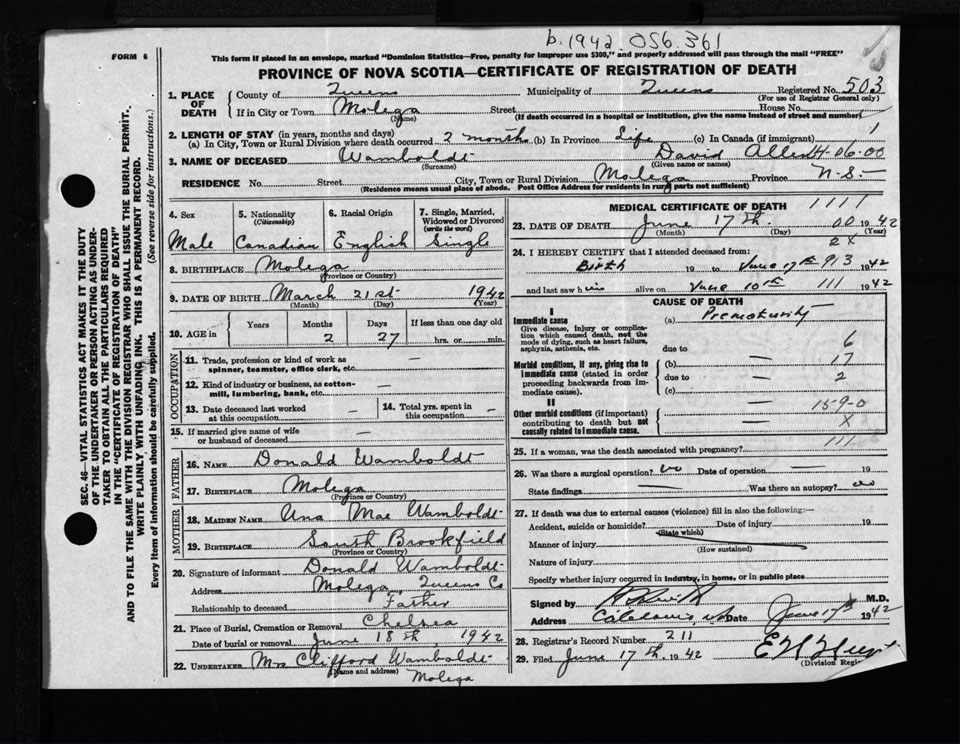 b. 1942 056 361
FORM 6
This form if placed in an envelope, marked "Dominion Statistics—Free, penalty for improper use $300," and properly addressed will pass through the mail "FREE"
PROVINCE OF NOVA SCOTIA—CERTIFICATE OF REGISTRATION OF DEATH
SEC. 46—VITAL STATISTICS ACT MAKES IT THE DUTY
OF THE UNDERTAKER OR PERSON ACTING AS UNDER-
TAKER TO OBTAIN ALL THE PARTICULARS REQUIRED
IN THE "CERTIFICATE OF REGISTRATION OF DEATH"
AND TO FILE THE SAME WITH THE DIVISION REGISTRAR WHO SHALL ISSUE THE BURIAL PERMIT.
WRITE PLAINLY WITH UNFADING INK. THIS IS A PERMANENT RECORD.
Every item of information should be carefully supplied. (See reverse side for instructions.)
1. PLACE OF DEATH County of Queens Municipality of Queens Registered No. 503
(For use of Registrar General only)
If in City or Town Molega Street House No.
(Name) (If death occurred in a hospital or institution, give the name instead of street and number)
2. LENGTH OF STAY (in years, months and days) 1
(a) In City, Town or Rural Division where death occurred 2 months (b) In Province Life (c) In Canada (if immigrant)
3. NAME OF DECEASED Wamboldt David Allen H-06-00
(Surname) (Given name or names)
RESIDENCE No. Street City, Town or Rural Division Molega Province N.S.
(Residence means usual place of abode. Post Office Address for residents in rural parts not sufficient)
4. Sex Male
5. Nationality (Citizenship) Canadian
6. Racial Origin English
7. Single, Married, Widowed or Divorced (write the word) Single
8. BIRTHPLACE Molega
(Province or Country)
9. DATE OF BIRTH March 21st 1942
(Month) (Day) (Year)
10. AGE in Years Months 2 Days 27 If less than one day old hrs. or min.
OCCUPATION
11. Trade, profession or kind of work as spinner, teamster, office clerk, etc. —
12. Kind of industry or business, as cotton-mill, lumbering, bank, etc. —
13. Date deceased last worked at this occupation —
14. Total yrs. spent in this occupation —
15. If married give name of wife or husband of deceased —
FATHER
16. NAME Donald Wamboldt
17. BIRTHPLACE Molega
(Province or Country)
MOTHER
18. MAIDEN NAME Una Mae Wamboldt
19. BIRTHPLACE South Brookfield
(Province or Country)
20. Signature of informant Donald Wamboldt
Address Molega, Queens Co
Relationship to deceased Father
21. Place of Burial, Cremation or Removal Chelsea
Date of burial or removal June 18th 1942
22. UNDERTAKER Mrs Clifford Wamboldt
(Name and address)
Molega
MEDICAL CERTIFICATE OF DEATH 1111
23. DATE OF DEATH June 17th. 00 1942
(Month) (Day) (Year)
2X
24. I HEREBY CERTIFY that I attended deceased from:
Birth 19 to June 17th 913 1942
and last saw him alive on June 10th 111 1942
CAUSE OF DEATH
I
Immediate cause
Give disease, injury or complication which caused death, not the mode of dying, such as heart failure, asphyxia, asthenia, etc.
(a) Prematurity
due to — 6
Morbid conditions, if any, giving rise to immediate cause (stated in order proceeding backwards from immediate cause).
(b) — 17
due to — 2
(c) —
II
Other morbid conditions (if important) contributing to death but not causally related to immediate cause.
— 159-0
— X
111
25. If a woman, was the death associated with pregnancy?
26. Was there a surgical operation? no Date of operation — 19
State findings — Was there an autopsy? no
27. If death was due to external causes (violence) fill in also the following:—
Accident, suicide or homicide? Date of injury 19
(State which)
Manner of injury
(How sustained)
Nature of injury
Specify whether injury occurred in industry, in home, or in public place
Signed by M.D.
Address Date June 17th 1942
28. Registrar's Record Number 211
29. Filed June 17th. 1942
(Division Regis